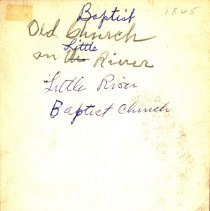 Baptist 1845
Old Church
Little
on the River
Little River
Baptist Church